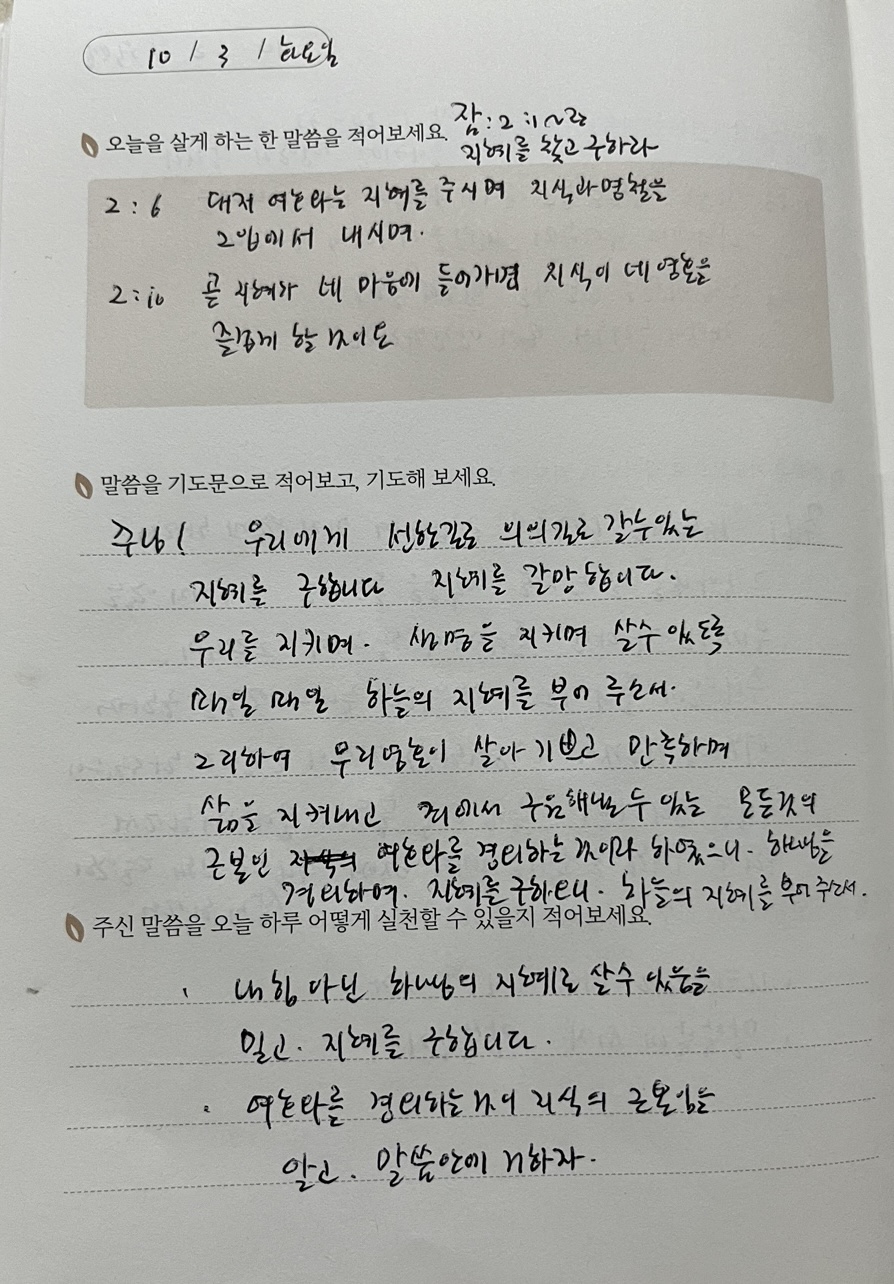 10 / 3 / 화요일
오늘을 살게 하는 한 말씀을 적어보세요.
잠:2:1~22
지혜를 찾고 구하라
2:6 대저 여호와는 지혜를 주시며 지식과 명철을
그입에서 내시며.
2:10 곧 지혜가 네 마음에 들어가며 지식이 네 영혼을
즐겁게 할 것이요
말씀을 기도문으로 적어보고, 기도해 보세요.
주님! 우리에게 선한길로 의의길로 갈수있는
지혜를 구합니다 지혜를 갈망합니다.
우리를 지키며. 생명을 지키며 살수 있도록
매일 매일 하늘의 지혜를 부어 주소서.
그리하여 우리영혼이 살아 기쁘고 만족하며
삶을 지켜내고 죄에서 구원해낼 수 있는 모든것의
근본인 여호와를 경외하는 것이라 하였으니. 하나님을
경외하여. 지혜를 구하오니. 하늘의 지혜를 부어 주소서.
주신 말씀을 오늘 하루 어떻게 실천할 수 있을지 적어보세요.
내힘 아닌 하나님의 지혜로 살수 있음을
믿고. 지혜를 구합니다.
여호와를 경외하는것이 지식의 근본임을
알고. 말씀안에 거하자.